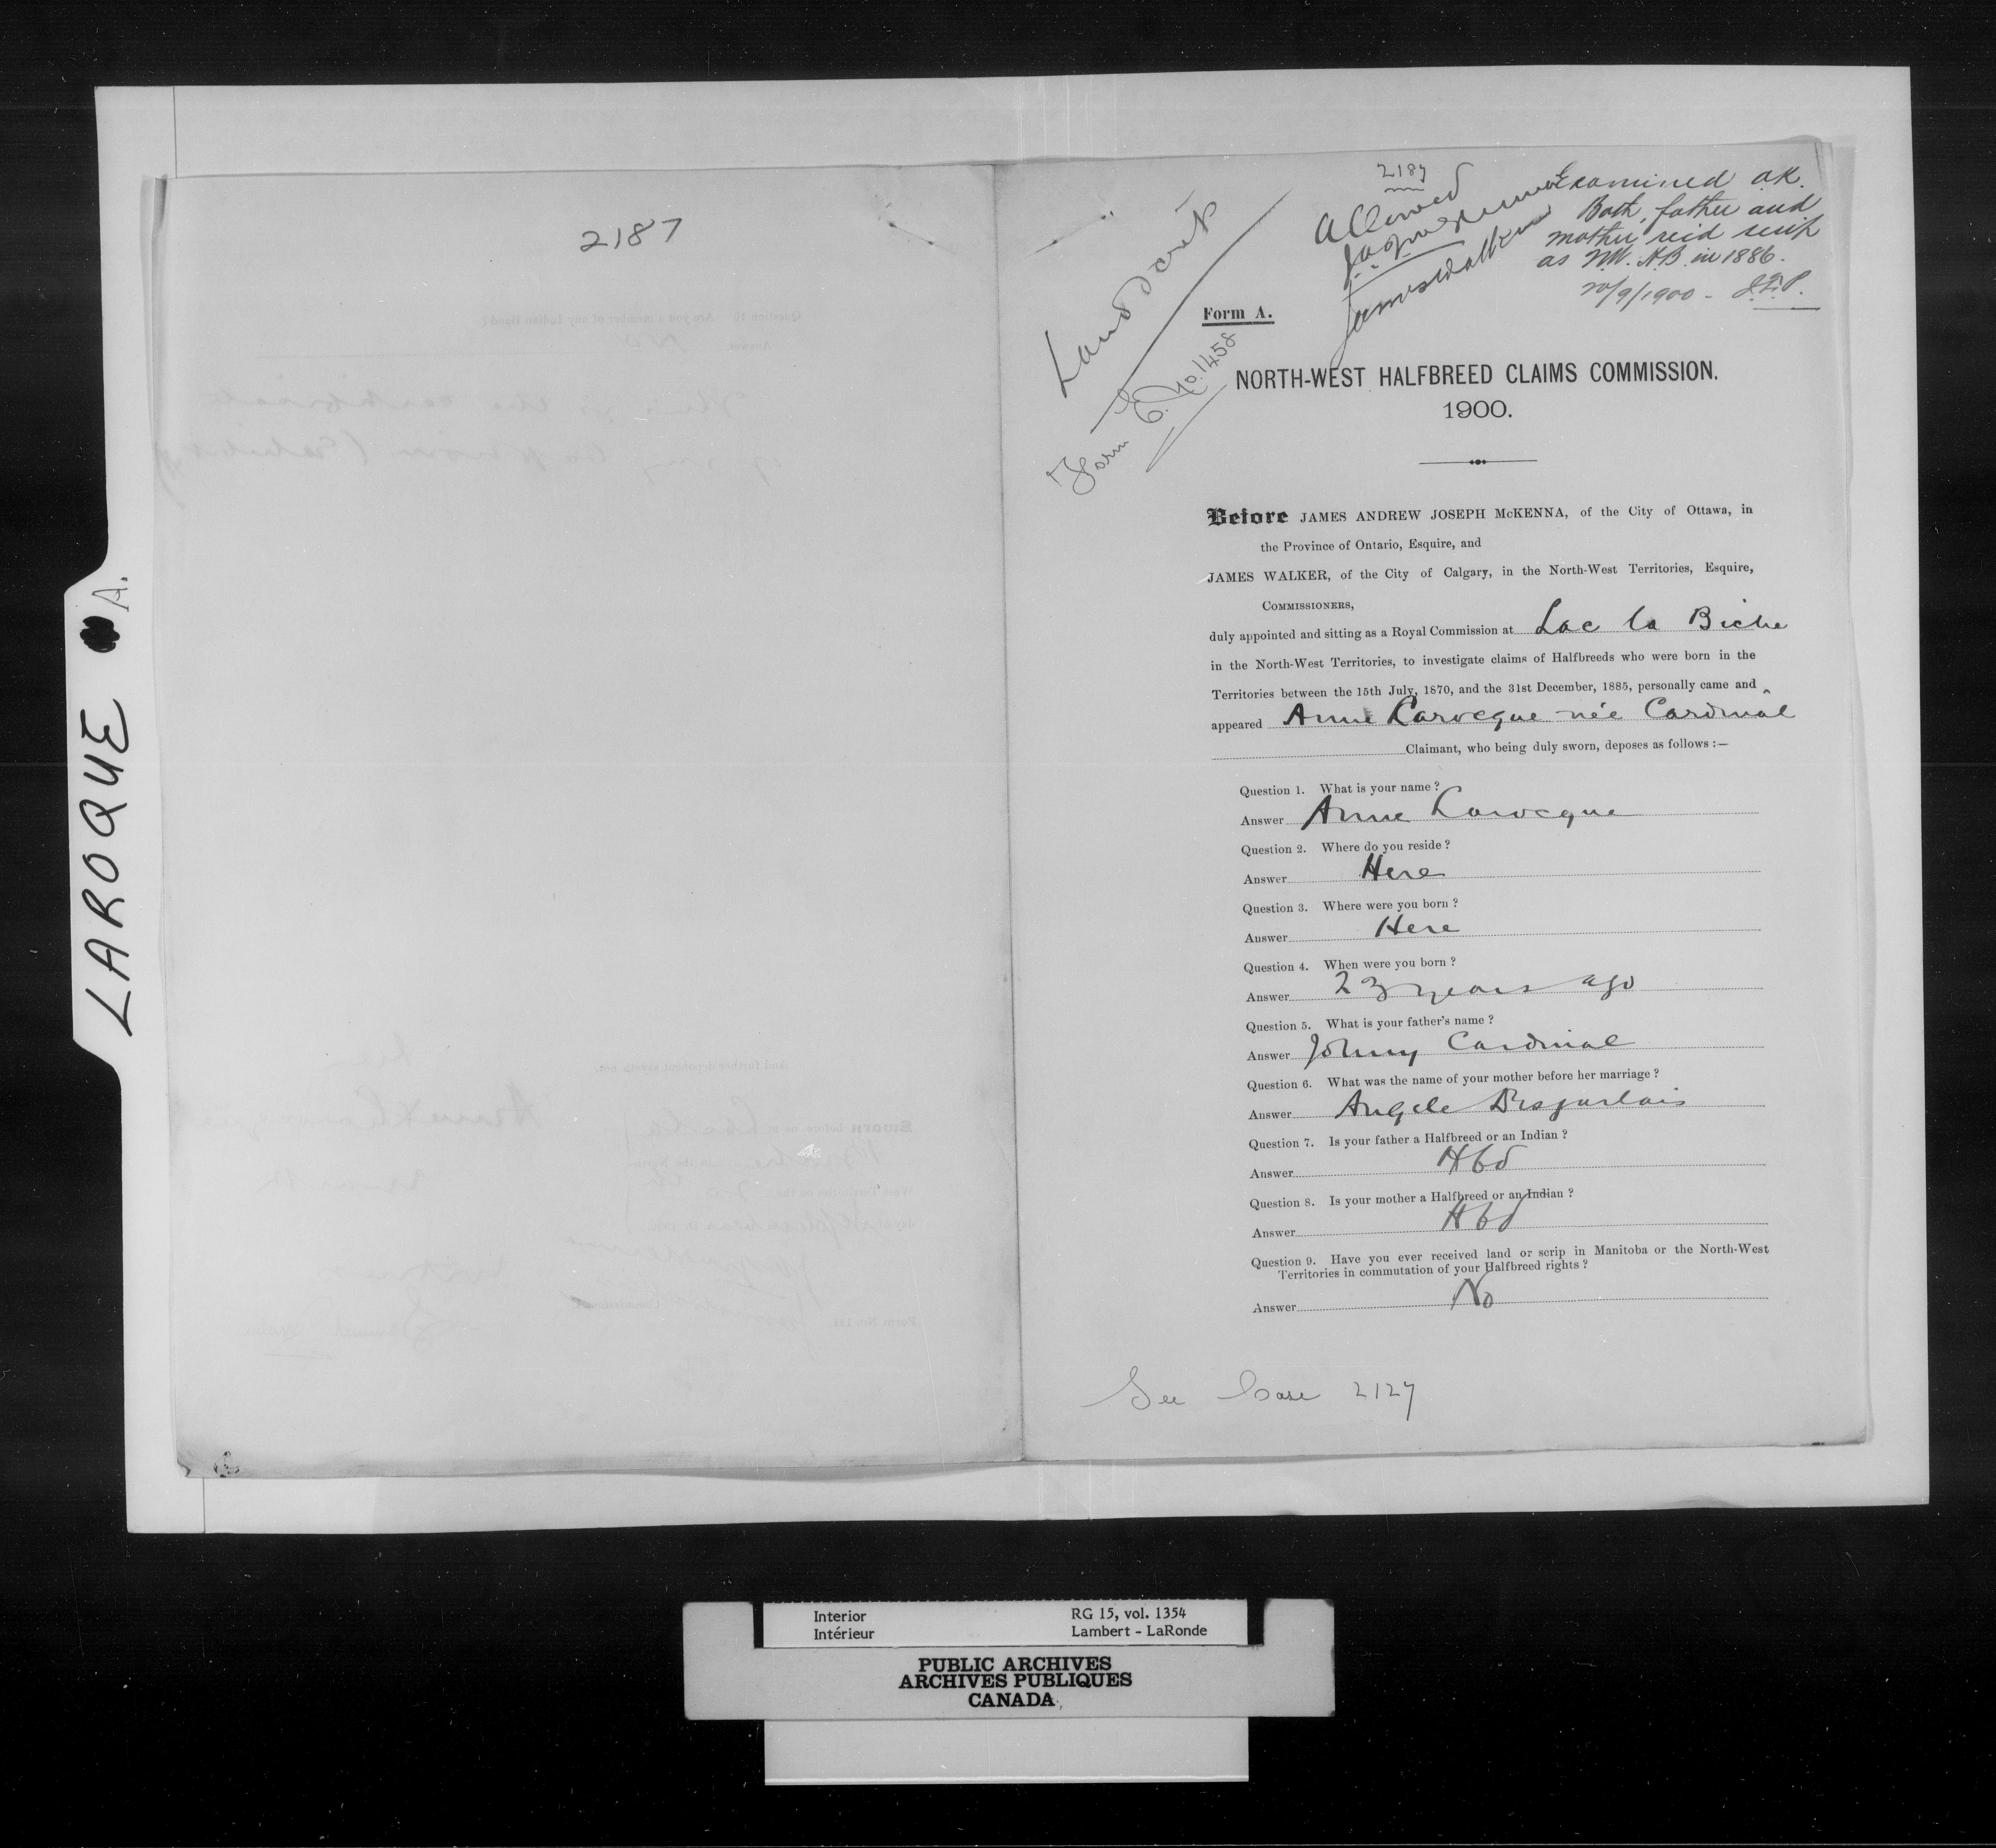 LAROQUE A.
2187
2187
Allowed
J.A.J. McKenna
James Walker
Examined O.K.
Both father and
mother rec'd scrip
as N.W. H.B. in 1886.
20/9/1900 - J.L.P.
Land
Form E. No. 1458
Form A.
NORTH-WEST HALFBREED CLAIMS COMMISSION.
1900.
Before JAMES ANDREW JOSEPH McKENNA, of the City of Ottawa, in
the Province of Ontario, Esquire, and
JAMES WALKER, of the City of Calgary, in the North-West Territories, Esquire,
COMMISSIONERS,
duly appointed and sitting as a Royal Commission at Lac la Biche
in the North-West Territories, to investigate claims of Halfbreeds who were born in the
Territories between the 15th July, 1870, and the 31st December, 1885, personally came and
appeared Anne Larocque née Cardinal
Claimant, who being duly sworn, deposes as follows :—
Question 1. What is your name ?
Answer Anne Larocque
Question 2. Where do you reside ?
Answer Here
Question 3. Where were you born ?
Answer Here
Question 4. When were you born ?
Answer 23 years ago
Question 5. What is your father's name ?
Answer Johny Cardinal
Question 6. What was the name of your mother before her marriage ?
Answer Angele Desjarlais
Question 7. Is your father a Halfbreed or an Indian ?
Answer Hbd
Question 8. Is your mother a Halfbreed or an Indian ?
Answer Hbd
Question 9. Have you ever received land or scrip in Manitoba or the North-West
Territories in commutation of your Halfbreed rights ?
Answer No
See Case 2127
Interior RG 15, vol. 1354
Intérieur Lambert - LaRonde
PUBLIC ARCHIVES
ARCHIVES PUBLIQUES
CANADA